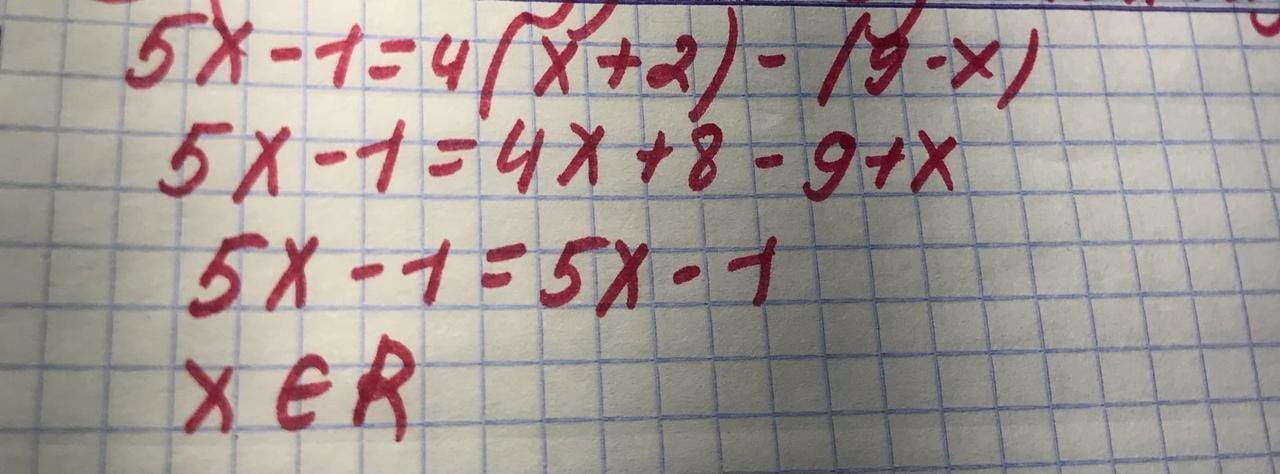 5x - 1 = 4(x + 2) - (9 - x)
5x - 1 = 4x + 8 - 9 + x
5x - 1 = 5x - 1
x ∈ R